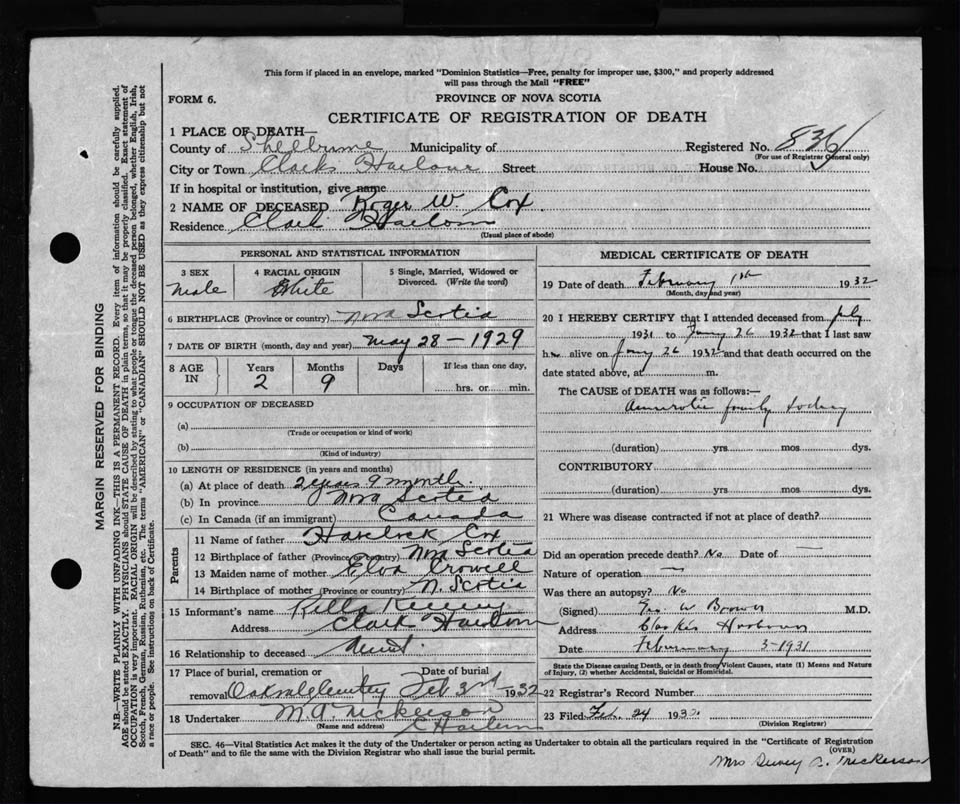 This form if placed in an envelope, marked "Dominion Statistics—Free, penalty for improper use, $300," and properly addressed
will pass through the Mail "FREE"
FORM 6.
PROVINCE OF NOVA SCOTIA
CERTIFICATE OF REGISTRATION OF DEATH
1 PLACE OF DEATH—
County of Shelburne Municipality of Registered No. 836
(For use of Registrar General only)
City or Town Clarks Harbour Street House No.
If in hospital or institution, give name
2 NAME OF DECEASED Roger W Cox
Residence Clark Harbour
(Usual place of abode)
PERSONAL AND STATISTICAL INFORMATION
3 SEX
Male
4 RACIAL ORIGIN
White
5 Single, Married, Widowed or
Divorced. (Write the word)
6 BIRTHPLACE (Province or country) Nova Scotia
7 DATE OF BIRTH (month, day and year) May 28 – 1929
8 AGE
IN
Years
2
Months
9
Days
If less than one day,
hrs. or min.
9 OCCUPATION OF DECEASED
(a)
(Trade or occupation or kind of work)
(b)
(Kind of industry)
10 LENGTH OF RESIDENCE (in years and months)
(a) At place of death 2 years 9 months
(b) In province Nova Scotia
(c) In Canada (if an immigrant) Canada
Parents
11 Name of father Havelock Cox
12 Birthplace of father (Province or country) Nova Scotia
13 Maiden name of mother Elva Crowell
14 Birthplace of mother (Province or country) N. Scotia
15 Informant's name
Address Clark Harbour
16 Relationship to deceased Aunt.
17 Place of burial, cremation or Date of burial
removal Feb 3rd 1932
18 Undertaker M A Nickerson
(Name and address) C Harbour
MEDICAL CERTIFICATE OF DEATH
19 Date of death February 1st 1932
(Month, day and year)
20 I HEREBY CERTIFY that I attended deceased from
1931 to 26 1932 that I last saw
h alive on 26 1932 and that death occurred on the
date stated above, at m.
The CAUSE of DEATH was as follows:—
(duration) yrs mos dys.
CONTRIBUTORY
(duration) yrs mos dys.
21 Where was disease contracted if not at place of death?
Did an operation precede death? No Date of —
Nature of operation —
Was there an autopsy? No
(Signed) W Brown M.D.
Address Clarks Harbour
Date February 3-1931
State the Disease causing Death, or in death from Violent Causes, state (1) Means and Nature
of Injury, (2) whether Accidental, Suicidal or Homicidal.
22 Registrar's Record Number
23 Filed Feb. 24 1932
(Division Registrar)
SEC. 46—Vital Statistics Act makes it the duty of the Undertaker or person acting as Undertaker to obtain all the particulars required in the "Certificate of Registration
of Death" and to file the same with the Division Registrar who shall issue the burial permit.
(OVER)
Mrs Nickerson
MARGIN RESERVED FOR BINDING
N.B.—WRITE PLAINLY WITH UNFADING INK—THIS IS A PERMANENT RECORD. Every item of information should be carefully supplied.
AGE should be stated EXACTLY. PHYSICIANS should STATE CAUSE OF DEATH in plain terms, so that it may be properly classified. Exact statement of
OCCUPATION is very important. RACIAL ORIGIN will be described by stating to what people or tongue the deceased person belonged, whether English, Irish,
Scotch, French, German, Russian, Ruthenian, etc. The terms "AMERICAN" or "CANADIAN" SHOULD NOT BE USED as they express citizenship but not
a race or people. See instructions on back of Certificate.